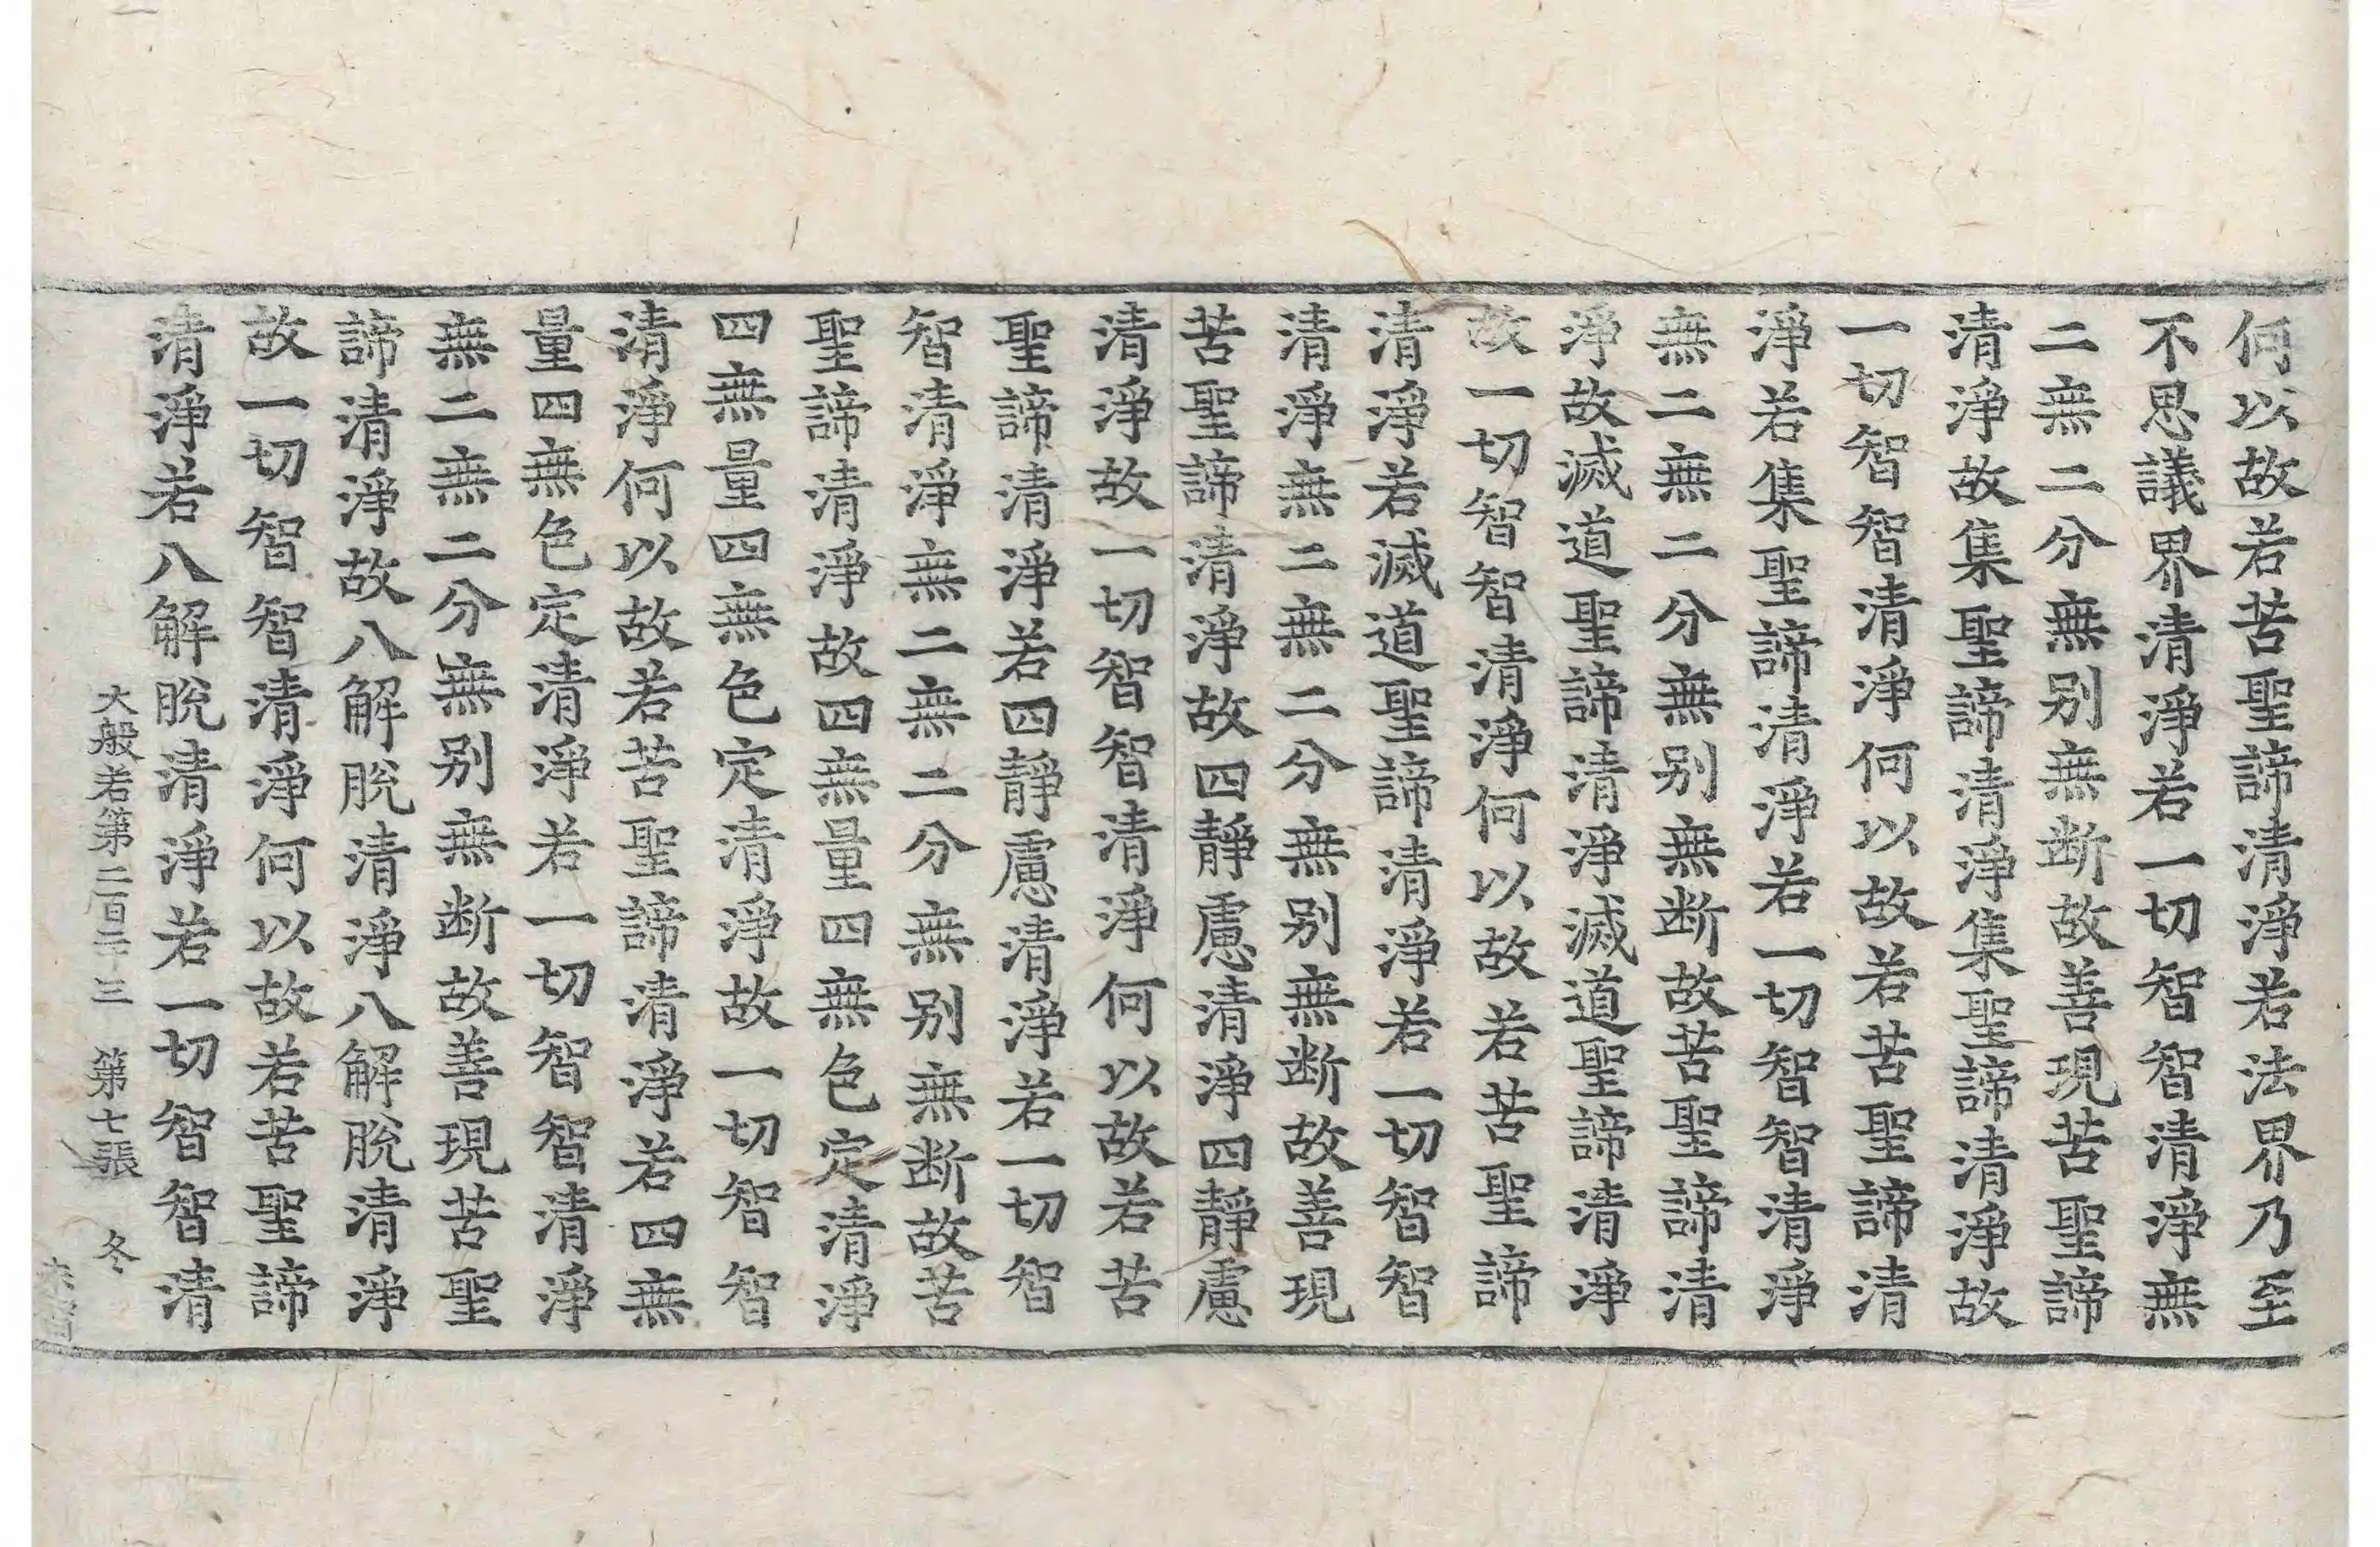 何以故若苦聖諦清淨若法界乃至
不思議界清淨若一切智智清淨無
二無二分無别無断故善現苦聖諦
清淨故集聖諦清淨集聖諦清淨故
一切智智清淨何以故若苦聖諦清
淨若集聖諦清淨若一切智智清淨
無二無二分無别無断故苦聖諦清
淨故滅道聖諦清淨滅道聖諦清淨
故一切智智清淨何以故若苦聖諦
清淨若滅道聖諦清淨若一切智智
清淨無二無二分無别無断故善現
苦聖諦清淨故四靜慮清淨四靜慮
清淨故一切智智清淨何以故若苦
聖諦清淨若四靜慮清淨若一切智
智清淨無二無二分無别無断故苦
聖諦清淨故四無量四無色定清淨
四無量四無色定清淨故一切智智
清淨何以故若苦聖諦清淨若四無
量四無色定清淨若一切智智清淨
無二無二分無别無断故善現苦聖
諦清淨故八解脫清淨八解脫清淨
故一切智智清淨何以故若苦聖諦
清淨若八解脫清淨若一切智智清
大般若第二百三十三 第七張 冬